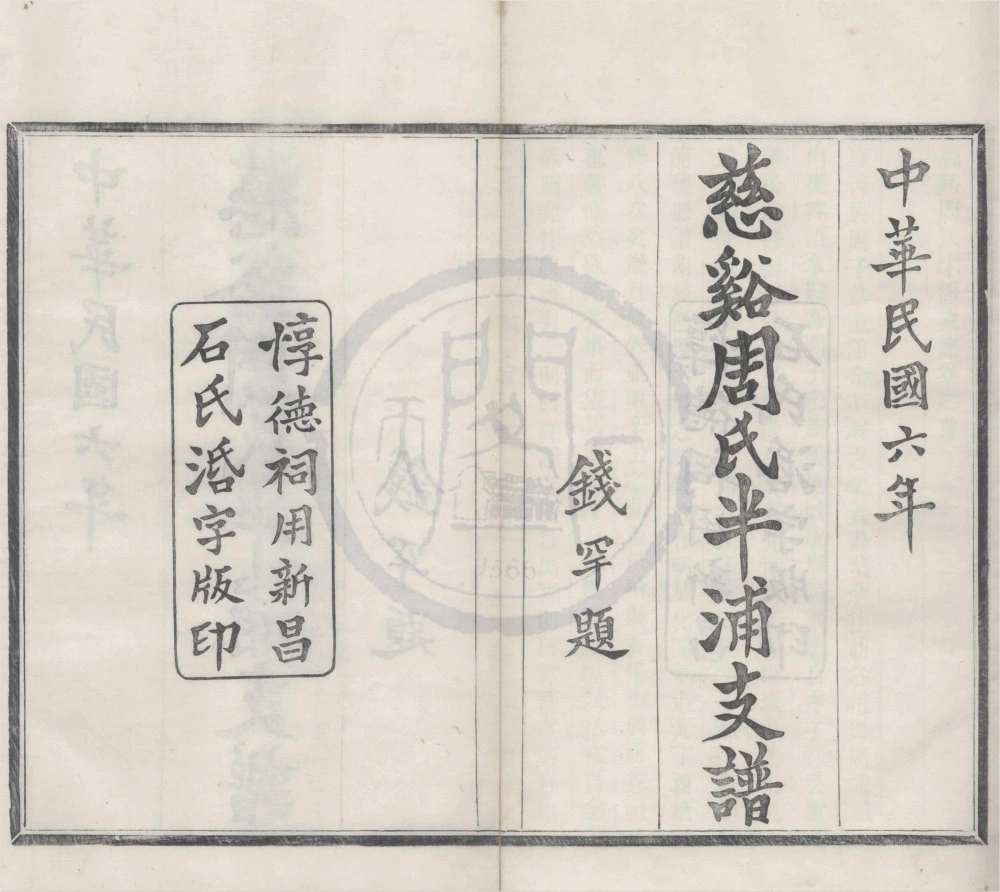 中華民國六年
慈谿周氏半浦支譜
錢罕題
惇德祠用新昌
石氏湉字版印
1566